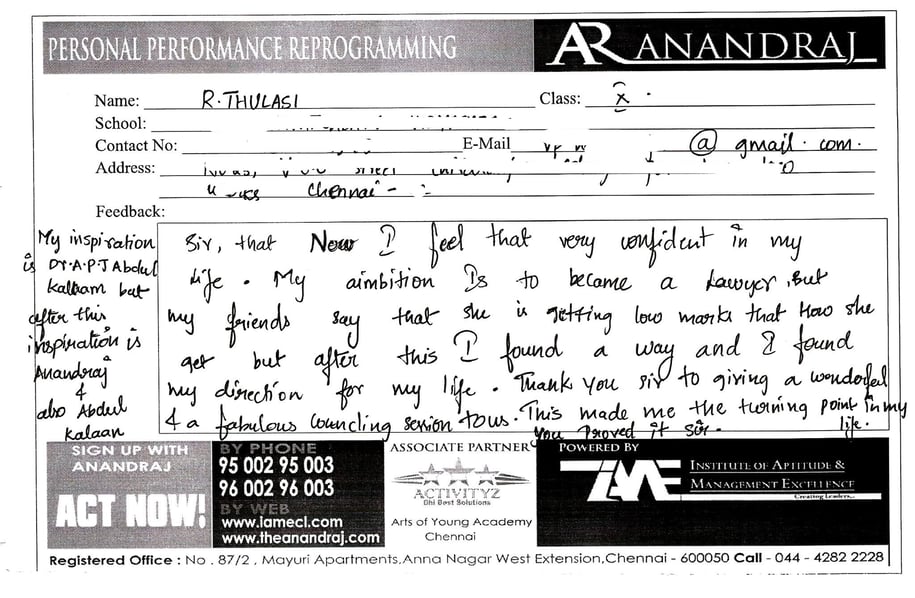 PERSONAL PERFORMANCE REPROGRAMMING
AR ANANDRAJ
Name: R. THULASI Class: X.
School:
Contact No: E-Mail @ gmail. com.
Address:
Chennai -
Feedback:
My inspiration
is Dr. A.P.J Abdul
Kallam but
after this
inspiration is
Anandraj
&
also Abdul
Kalaan
Sir, that Now I feel that very confident in my
life. My aimbition Is to became a Lawyer, But
my friends say that she is getting low marks that How she
get but after this I found a way and I found
my direction for my life. Thank you sir to giving a wondofel
& a fabulous councling session to us. This made me the turning point in my
life.
You Proved it Sir.
SIGN UP WITH
ANANDRAJ
ACT NOW!
BY PHONE
95 002 95 003
96 002 96 003
BY WEB
www.iamecl.com
www.theanandraj.com
ASSOCIATE PARTNER
ACTIVITYZ
Dhi Best Solutions
Arts of Young Academy
Chennai
POWERED BY
IAME
INSTITUTE OF APTITUDE &
MANAGEMENT EXCELLENCE
Creating Leaders..
Registered Office : No . 87/2 , Mayuri Apartments,Anna Nagar West Extension,Chennai - 600050 Call - 044 - 4282 2228